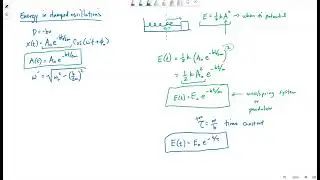 Energy in damped oscillations
D = -bv
x(t) = A₀ e^(-bt/2m) Cos(ω't + φ₀)
A(t) = A₀ e^(-bt/2m)
ω' = √(ω₀² - (b/2m)²)
E = ½ k A² → when all potential
E(t) = ½ k (A₀ e^(-bt/2m))²
= ½ k A₀² e^(-bt/m)
E(t) = E₀ e^(-bt/m)
mass/spring system
or pendulum
τ = m/b time constant
E(t) = E₀ e^(-t/τ)